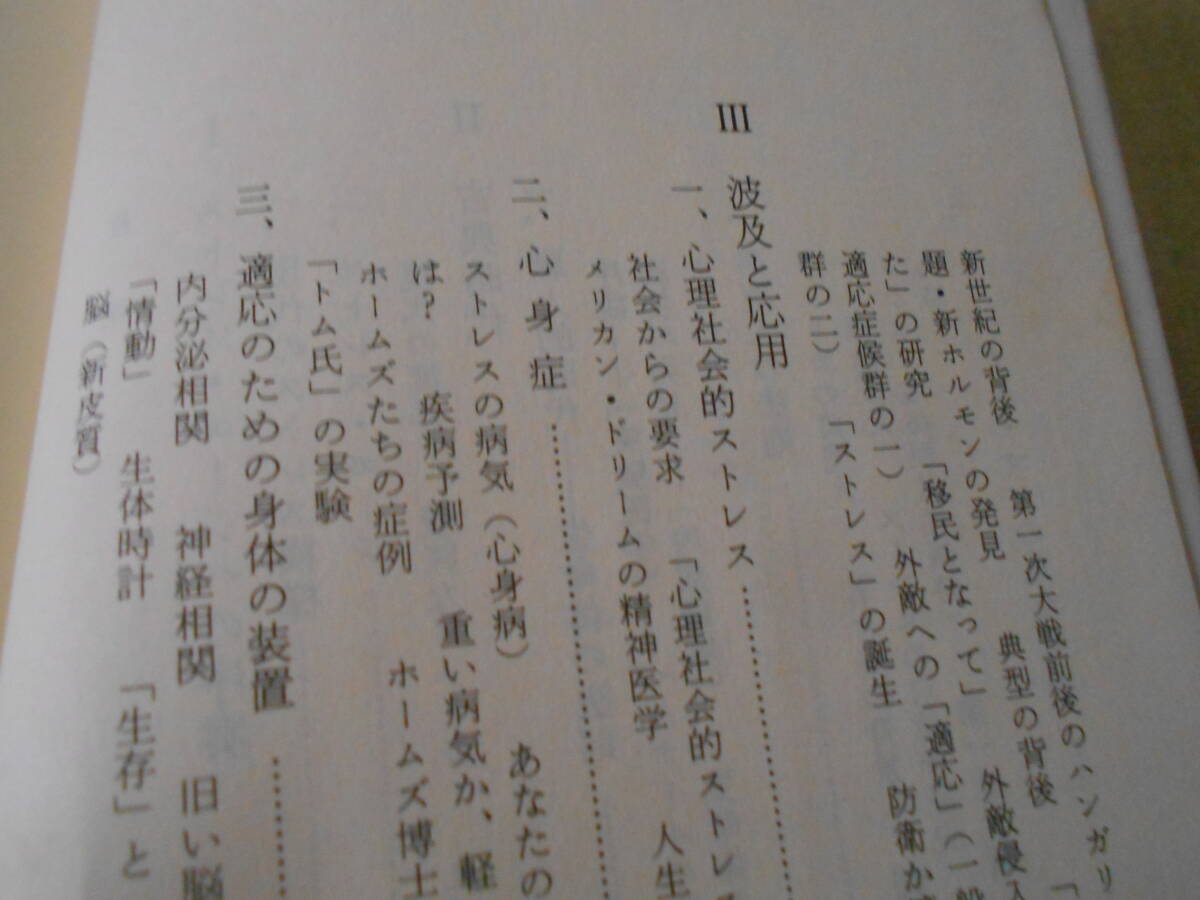 新世紀の背後　第一次大戦前後のハンガリ
題・新ホルモンの発見　典型の背後　「
た」の研究　「移民となって」　外敵侵入
適応症候群の一）　外敵への「適応」（一般
群の二）　「ストレス」の誕生　防衛か
III　波及と応用
一、心理社会的ストレス
社会からの要求　「心理社会的ストレス
メリカン・ドリームの精神医学　人生
二、心身症
ストレスの病気（心身病）　あなたの
は？　疾病予測　重い病気か、軽
ホームズたちの症例　ホームズ博士
「トム氏」の実験
三、適応のための身体の装置
内分泌相関　神経相関　旧い脳
「情動」　生体時計　「生存」と
脳（新皮質）